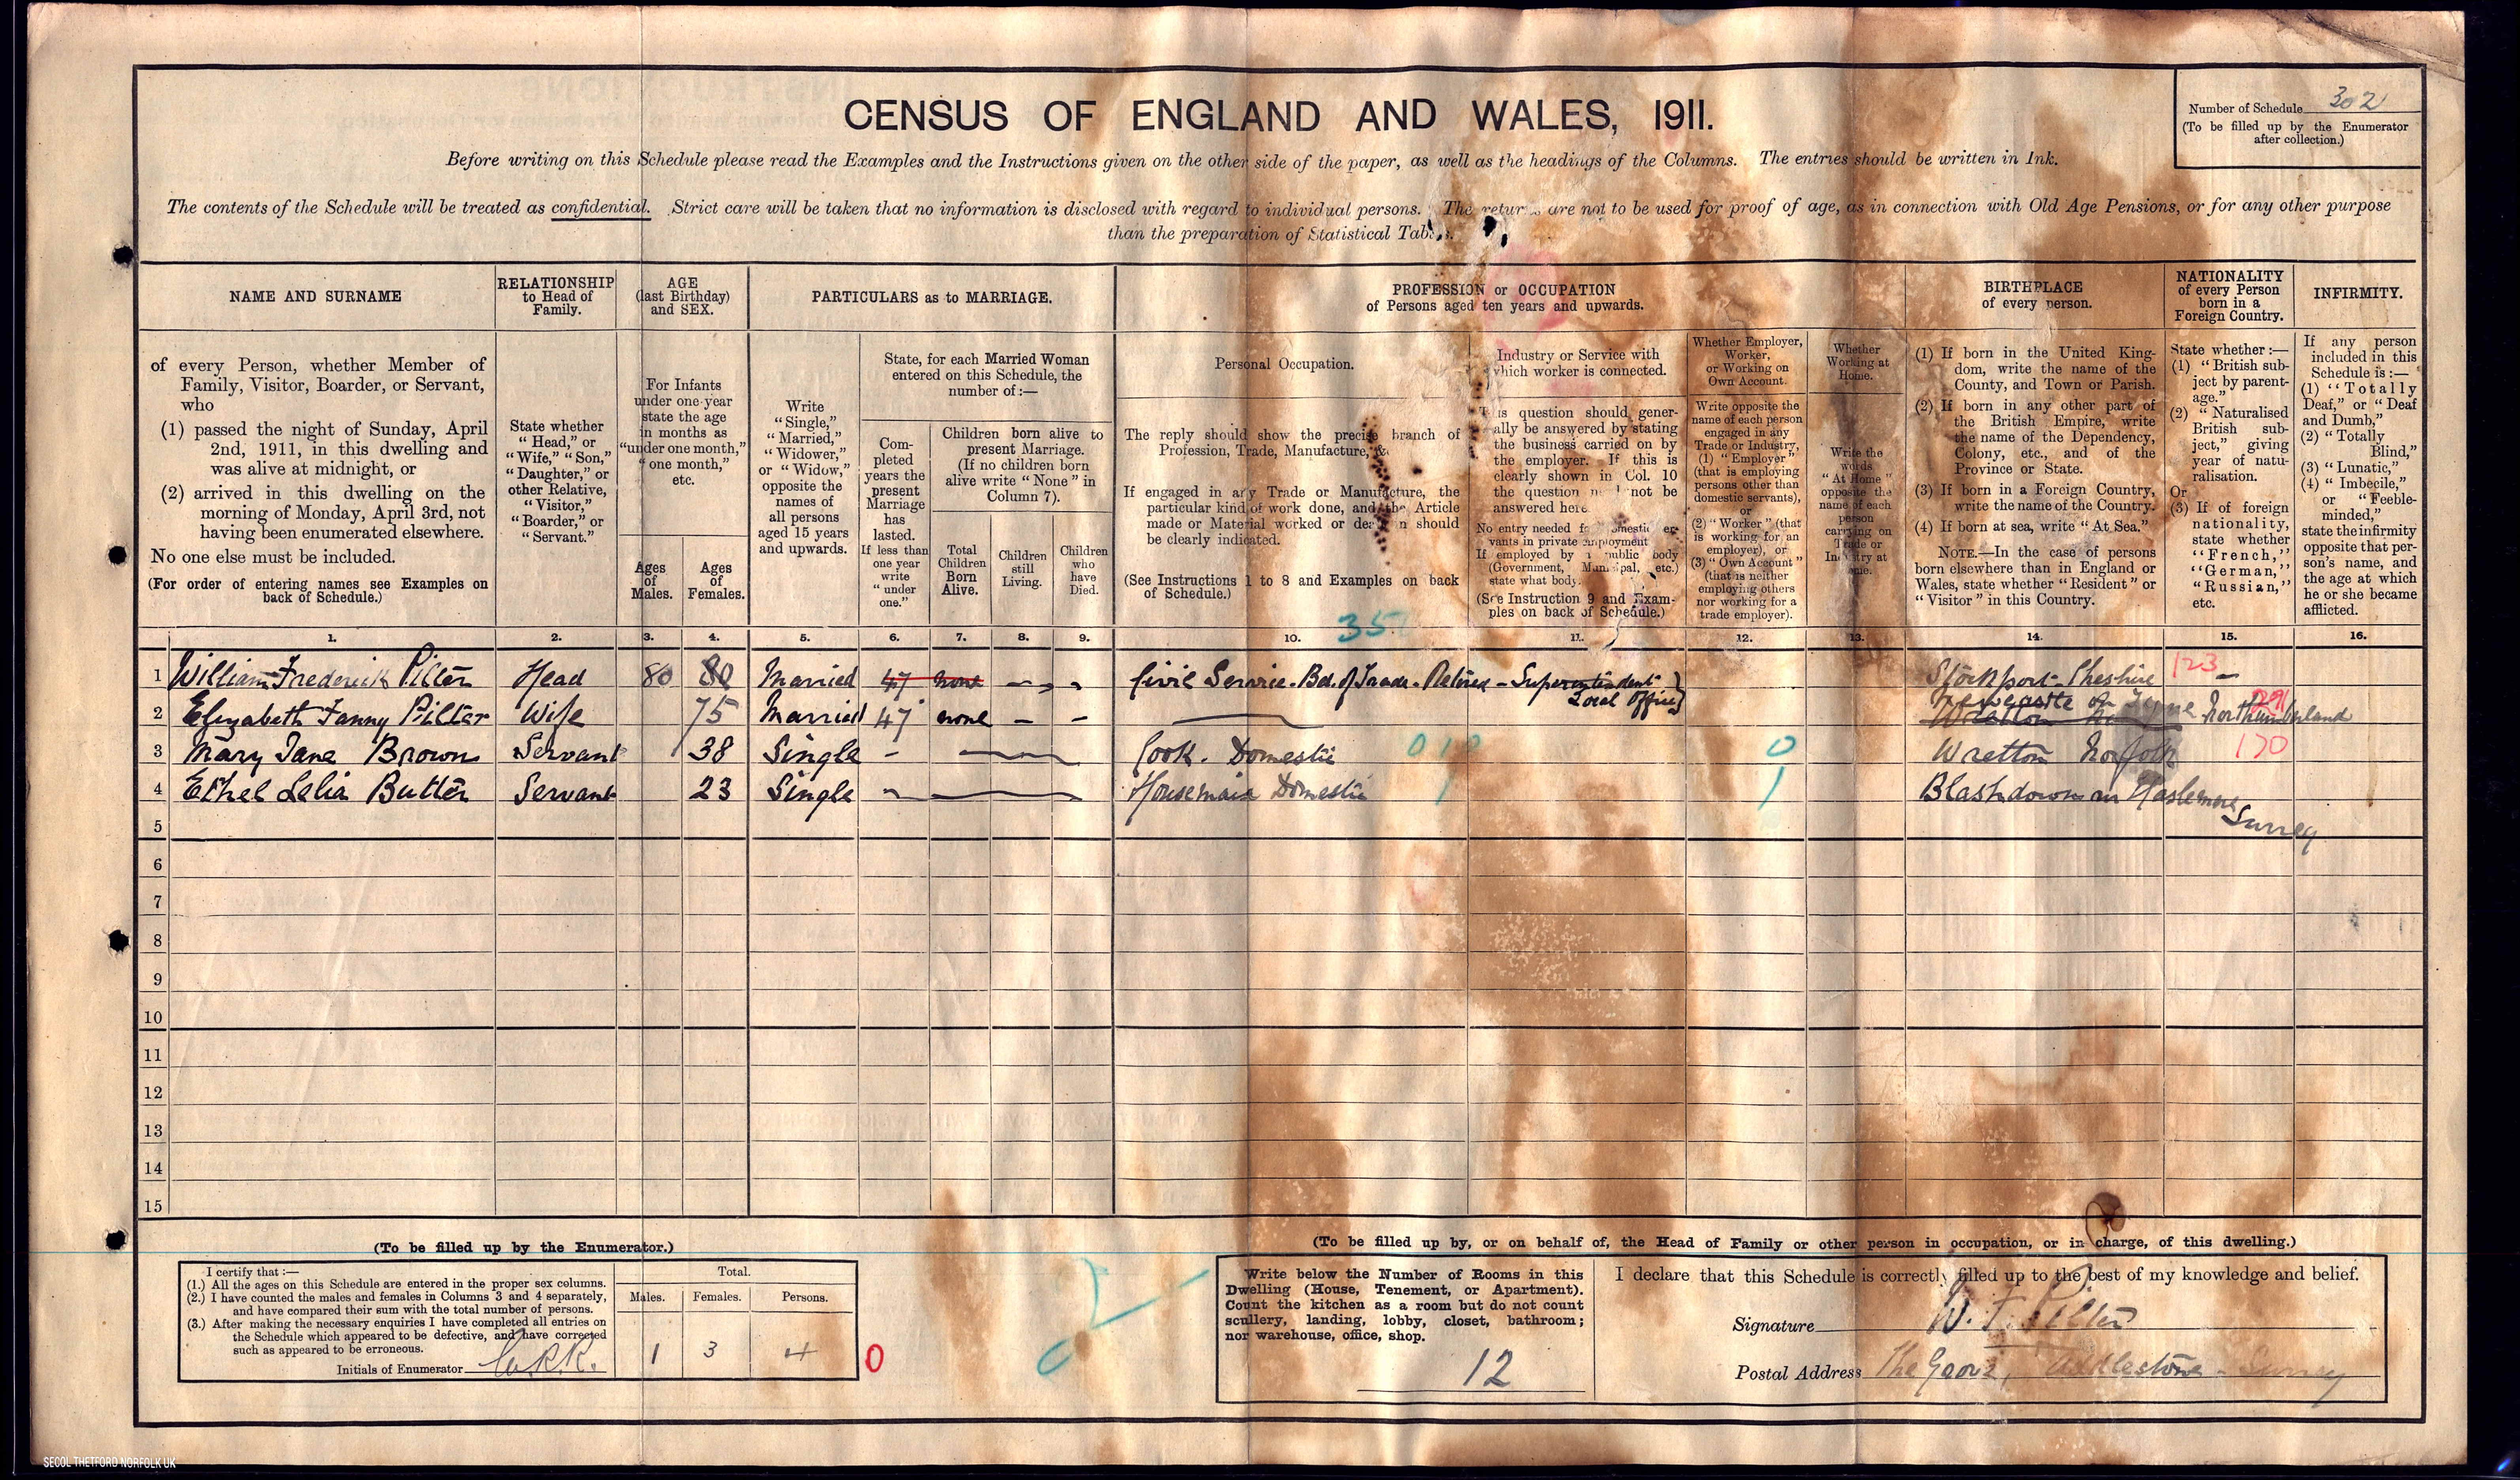 CENSUS OF ENGLAND AND WALES, 1911.
Number of Schedule 302
(To be filled up by the Enumerator
after collection.)
Before writing on this Schedule please read the Examples and the Instructions given on the other side of the paper, as well as the headings of the Columns. The entries should be written in Ink.
The contents of the Schedule will be treated as confidential. Strict care will be taken that no information is disclosed with regard to individual persons. The returns are not to be used for proof of age, as in connection with Old Age Pensions, or for any other purpose
than the preparation of Statistical Tables.
NAME AND SURNAME
of every Person, whether Member of
Family, Visitor, Boarder, or Servant,
who
(1) passed the night of Sunday, April
2nd, 1911, in this dwelling and
was alive at midnight, or
(2) arrived in this dwelling on the
morning of Monday, April 3rd, not
having been enumerated elsewhere.
No one else must be included.
(For order of entering names see Examples on
back of Schedule.)
RELATIONSHIP
to Head of
Family.
State whether
"Head," or
"Wife," "Son,"
"Daughter," or
other Relative,
"Visitor,"
"Boarder," or
"Servant."
AGE
(last Birthday)
and SEX.
For Infants
under one year
state the age
in months as
"under one month,"
"one month,"
etc.
Ages
of
Males.
Ages
of
Females.
PARTICULARS as to MARRIAGE.
Write
"Single,"
"Married,"
"Widower,"
or "Widow,"
opposite the
names of
all persons
aged 15 years
and upwards.
State, for each Married Woman
entered on this Schedule, the
number of:—
Com-
pleted
years the
present
Marriage
has
lasted.
If less than
one year
write
"under
one."
Children born alive to
present Marriage.
(If no children born
alive write "None" in
Column 7).
Total
Children
Born
Alive.
Children
still
Living.
Children
who
have
Died.
PROFESSION or OCCUPATION
of Persons aged ten years and upwards.
Personal Occupation.
The reply should show the precise branch of
Profession, Trade, Manufacture, &c.
If engaged in any Trade or Manufacture, the
particular kind of work done, and the Article
made or Material worked or dealt in should
be clearly indicated.
(See Instructions 1 to 8 and Examples on back
of Schedule.)
Industry or Service with
which worker is connected.
This question should gener-
ally be answered by stating
the business carried on by
the employer. If this is
clearly shown in Col. 10
the question need not be
answered here.
No entry needed for Domestic ser-
vants in private employment
If employed by a public body
(Government, Municipal, etc.)
state what body.
(See Instruction 9 and Exam-
ples on back of Schedule.)
Whether Employer,
Worker,
or Working on
Own Account.
Write opposite the
name of each person
engaged in any
Trade or Industry,
(1) "Employer"
(that is employing
persons other than
domestic servants),
or
(2) "Worker" (that
is working for an
employer), or
(3) "Own Account"
(that is neither
employing others
nor working for a
trade employer).
Whether
Working at
Home.
Write the
words
"At Home"
opposite the
name of each
person
carrying on
Trade or
Industry at
Home.
BIRTHPLACE
of every person.
(1) If born in the United King-
dom, write the name of the
County, and Town or Parish.
(2) If born in any other part of
the British Empire, write
the name of the Dependency,
Colony, etc., and of the
Province or State.
(3) If born in a Foreign Country,
write the name of the Country.
(4) If born at sea, write "At Sea."
NOTE.—In the case of persons
born elsewhere than in England or
Wales, state whether "Resident" or
"Visitor" in this Country.
NATIONALITY
of every Person
born in a
Foreign Country.
State whether:—
(1) "British sub-
ject by parent-
age."
(2) "Naturalised
British sub-
ject," giving
year of natu-
ralisation.
Or
(3) If of foreign
nationality,
state whether
"French,"
"German,"
"Russian,"
etc.
INFIRMITY.
If any person
included in this
Schedule is:—
(1) "Totally
Deaf," or "Deaf
and Dumb,"
(2) "Totally
Blind,"
(3) "Lunatic,"
(4) "Imbecile,"
or "Feeble-
minded,"
state the infirmity
opposite that per-
son's name, and
the age at which
he or she became
afflicted.
1. 2. 3. 4. 5. 6. 7. 8. 9. 10. 35 11. 12. 13. 14. 15. 16.
1 William Frederick Pilter Head 80 80 Married 47 none - - Civil Service - Bd. of Trade - Retired - Superintendent Local Office Stockport Cheshire 123 -
2 Elizabeth Fanny Pilter Wife 75 Married 47 none - - Newcastle on Tyne Northumberland 291
3 Mary Jane Brown Servant 38 Single - Cook. Domestic 0 Wretton Norfolk 170
4 Ethel Lelia Butter Servant 23 Single - Housemaid Domestic 1 Blashdown nr Haslemere
Surrey
5
6
7
8
9
10
11
12
13
14
15
(To be filled up by the Enumerator.)
I certify that:—
(1.) All the ages on this Schedule are entered in the proper sex columns.
(2.) I have counted the males and females in Columns 3 and 4 separately,
and have compared their sum with the total number of persons.
(3.) After making the necessary enquiries I have completed all entries on
the Schedule which appeared to be defective, and have corrected
such as appeared to be erroneous.
Initials of Enumerator
Total.
Males. Females. Persons.
1 3 4 0
(To be filled up by, or on behalf of, the Head of Family or other person in occupation, or in charge, of this dwelling.)
Write below the Number of Rooms in this
Dwelling (House, Tenement, or Apartment).
Count the kitchen as a room but do not count
scullery, landing, lobby, closet, bathroom;
nor warehouse, office, shop.
12
I declare that this Schedule is correctly filled up to the best of my knowledge and belief.
Signature W. F. Pilter
Postal Address The Grove, Addlestone - Surrey
SECOL THETFORD NORFOLK UK